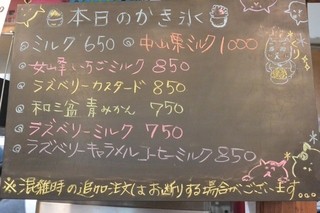 本日のかき氷
◎ミルク 650 ◎中山栗ミルク 1000
◎女峰いちごミルク 850
◎ラズベリーカスタード 850
◎和三盆青みかん 750
◎ラズベリーミルク 750
◎ラズベリーキャラメルコーヒーミルク 850
※混雑時の追加注文はお断りする場合がございます...